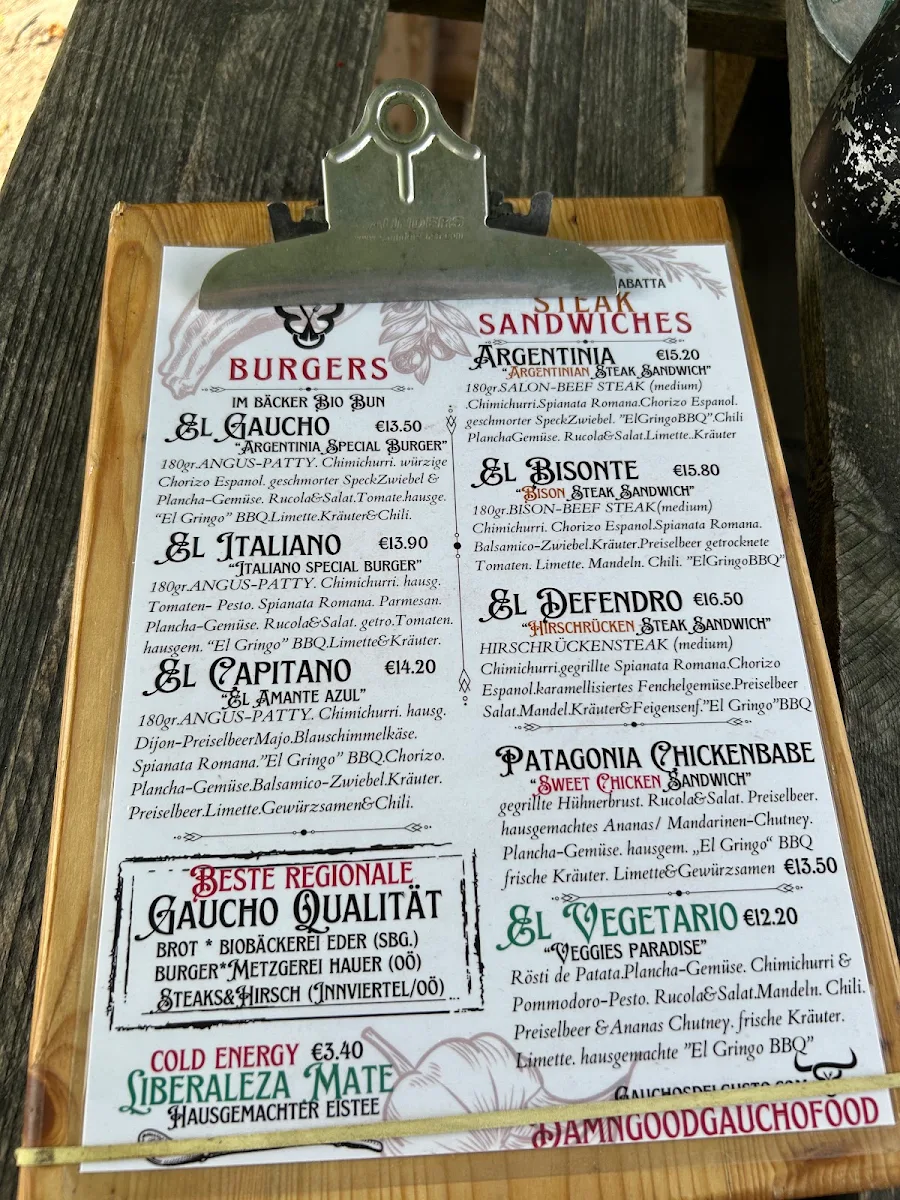 BURGERS
IM BÄCKER BIO BUN
EL GAUCHO €13.50
"ARGENTINIA SPECIAL BURGER"
180gr.ANGUS-PATTY. Chimichurri. würzige
Chorizo Espanol. geschmorter SpeckZwiebel &
Plancha-Gemüse. Rucola&Salat.Tomate.hausge.
"El Gringo" BBQ.Limette.Kräuter&Chili.
EL ITALIANO €13.90
"ITALIANO SPECIAL BURGER"
180gr.ANGUS-PATTY. Chimichurri. hausg.
Tomaten- Pesto. Spianata Romana. Parmesan.
Plancha-Gemüse. Rucola&Salat. getro.Tomaten.
hausgem. "El Gringo" BBQ.Limette&Kräuter.
EL CAPITANO €14.20
"EL AMANTE AZUL"
180gr.ANGUS-PATTY. Chimichurri. hausg.
Dijon-PreiselbeerMajo.Blauschimmelkäse.
Spianata Romana."El Gringo" BBQ.Chorizo.
Plancha-Gemüse.Balsamico-Zwiebel.Kräuter.
Preiselbeer.Limette.Gewürzsamen&Chili.
BESTE REGIONALE
GAUCHO QUALITÄT
BROT * BIOBÄCKEREI EDER (SBG.)
BURGER*METZGEREI HAUER (OÖ)
STEAKS&HIRSCH (INNVIERTEL/OÖ)
COLD ENERGY €3.40
LIBERALEZA MATE
HAUSGEMACHTER EISTEE
ABATTA
STEAK
SANDWICHES
ARGENTINIA €15.20
"ARGENTINIAN STEAK SANDWICH"
180gr.SALON-BEEF STEAK (medium)
.Chimichurri.Spianata Romana.Chorizo Espanol.
geschmorter SpeckZwiebel. "ElGringoBBQ".Chili
PlanchaGemüse. Rucola&Salat.Limette.Kräuter
EL BISONTE €15.80
"BISON STEAK SANDWICH"
180gr.BISON-BEEF STEAK(medium)
Chimichurri. Chorizo Espanol.Spianata Romana.
Balsamico-Zwiebel.Kräuter.Preiselbeer getrocknete
Tomaten. Limette. Mandeln. Chili. "ElGringoBBQ"
EL DEFENDRO €16.50
"HIRSCHRÜCKEN STEAK SANDWICH"
HIRSCHRÜCKENSTEAK (medium)
Chimichurri.gegrillte Spianata Romana.Chorizo
Espanol.karamellisiertes Fenchelgemüse.Preiselbeer
Salat.Mandel.Kräuter&Feigensenf."El Gringo"BBQ
PATAGONIA CHICKENBABE
"SWEET CHICKEN SANDWICH"
gegrillte Hühnerbrust. Rucola&Salat. Preiselbeer.
hausgemachtes Ananas/ Mandarinen-Chutney.
Plancha-Gemüse. hausgem. „El Gringo" BBQ
frische Kräuter. Limette&Gewürzsamen €13.50
EL VEGETARIO €12.20
"VEGGIES PARADISE"
Rösti de Patata.Plancha-Gemüse. Chimichurri &
Pommodoro-Pesto. Rucola&Salat.Mandeln. Chili.
Preiselbeer &Ananas Chutney. frische Kräuter.
Limette. hausgemachte "El Gringo BBQ"
GAUCHOSDELGUSTO.COM
DAMNGOODGAUCHOFOOD